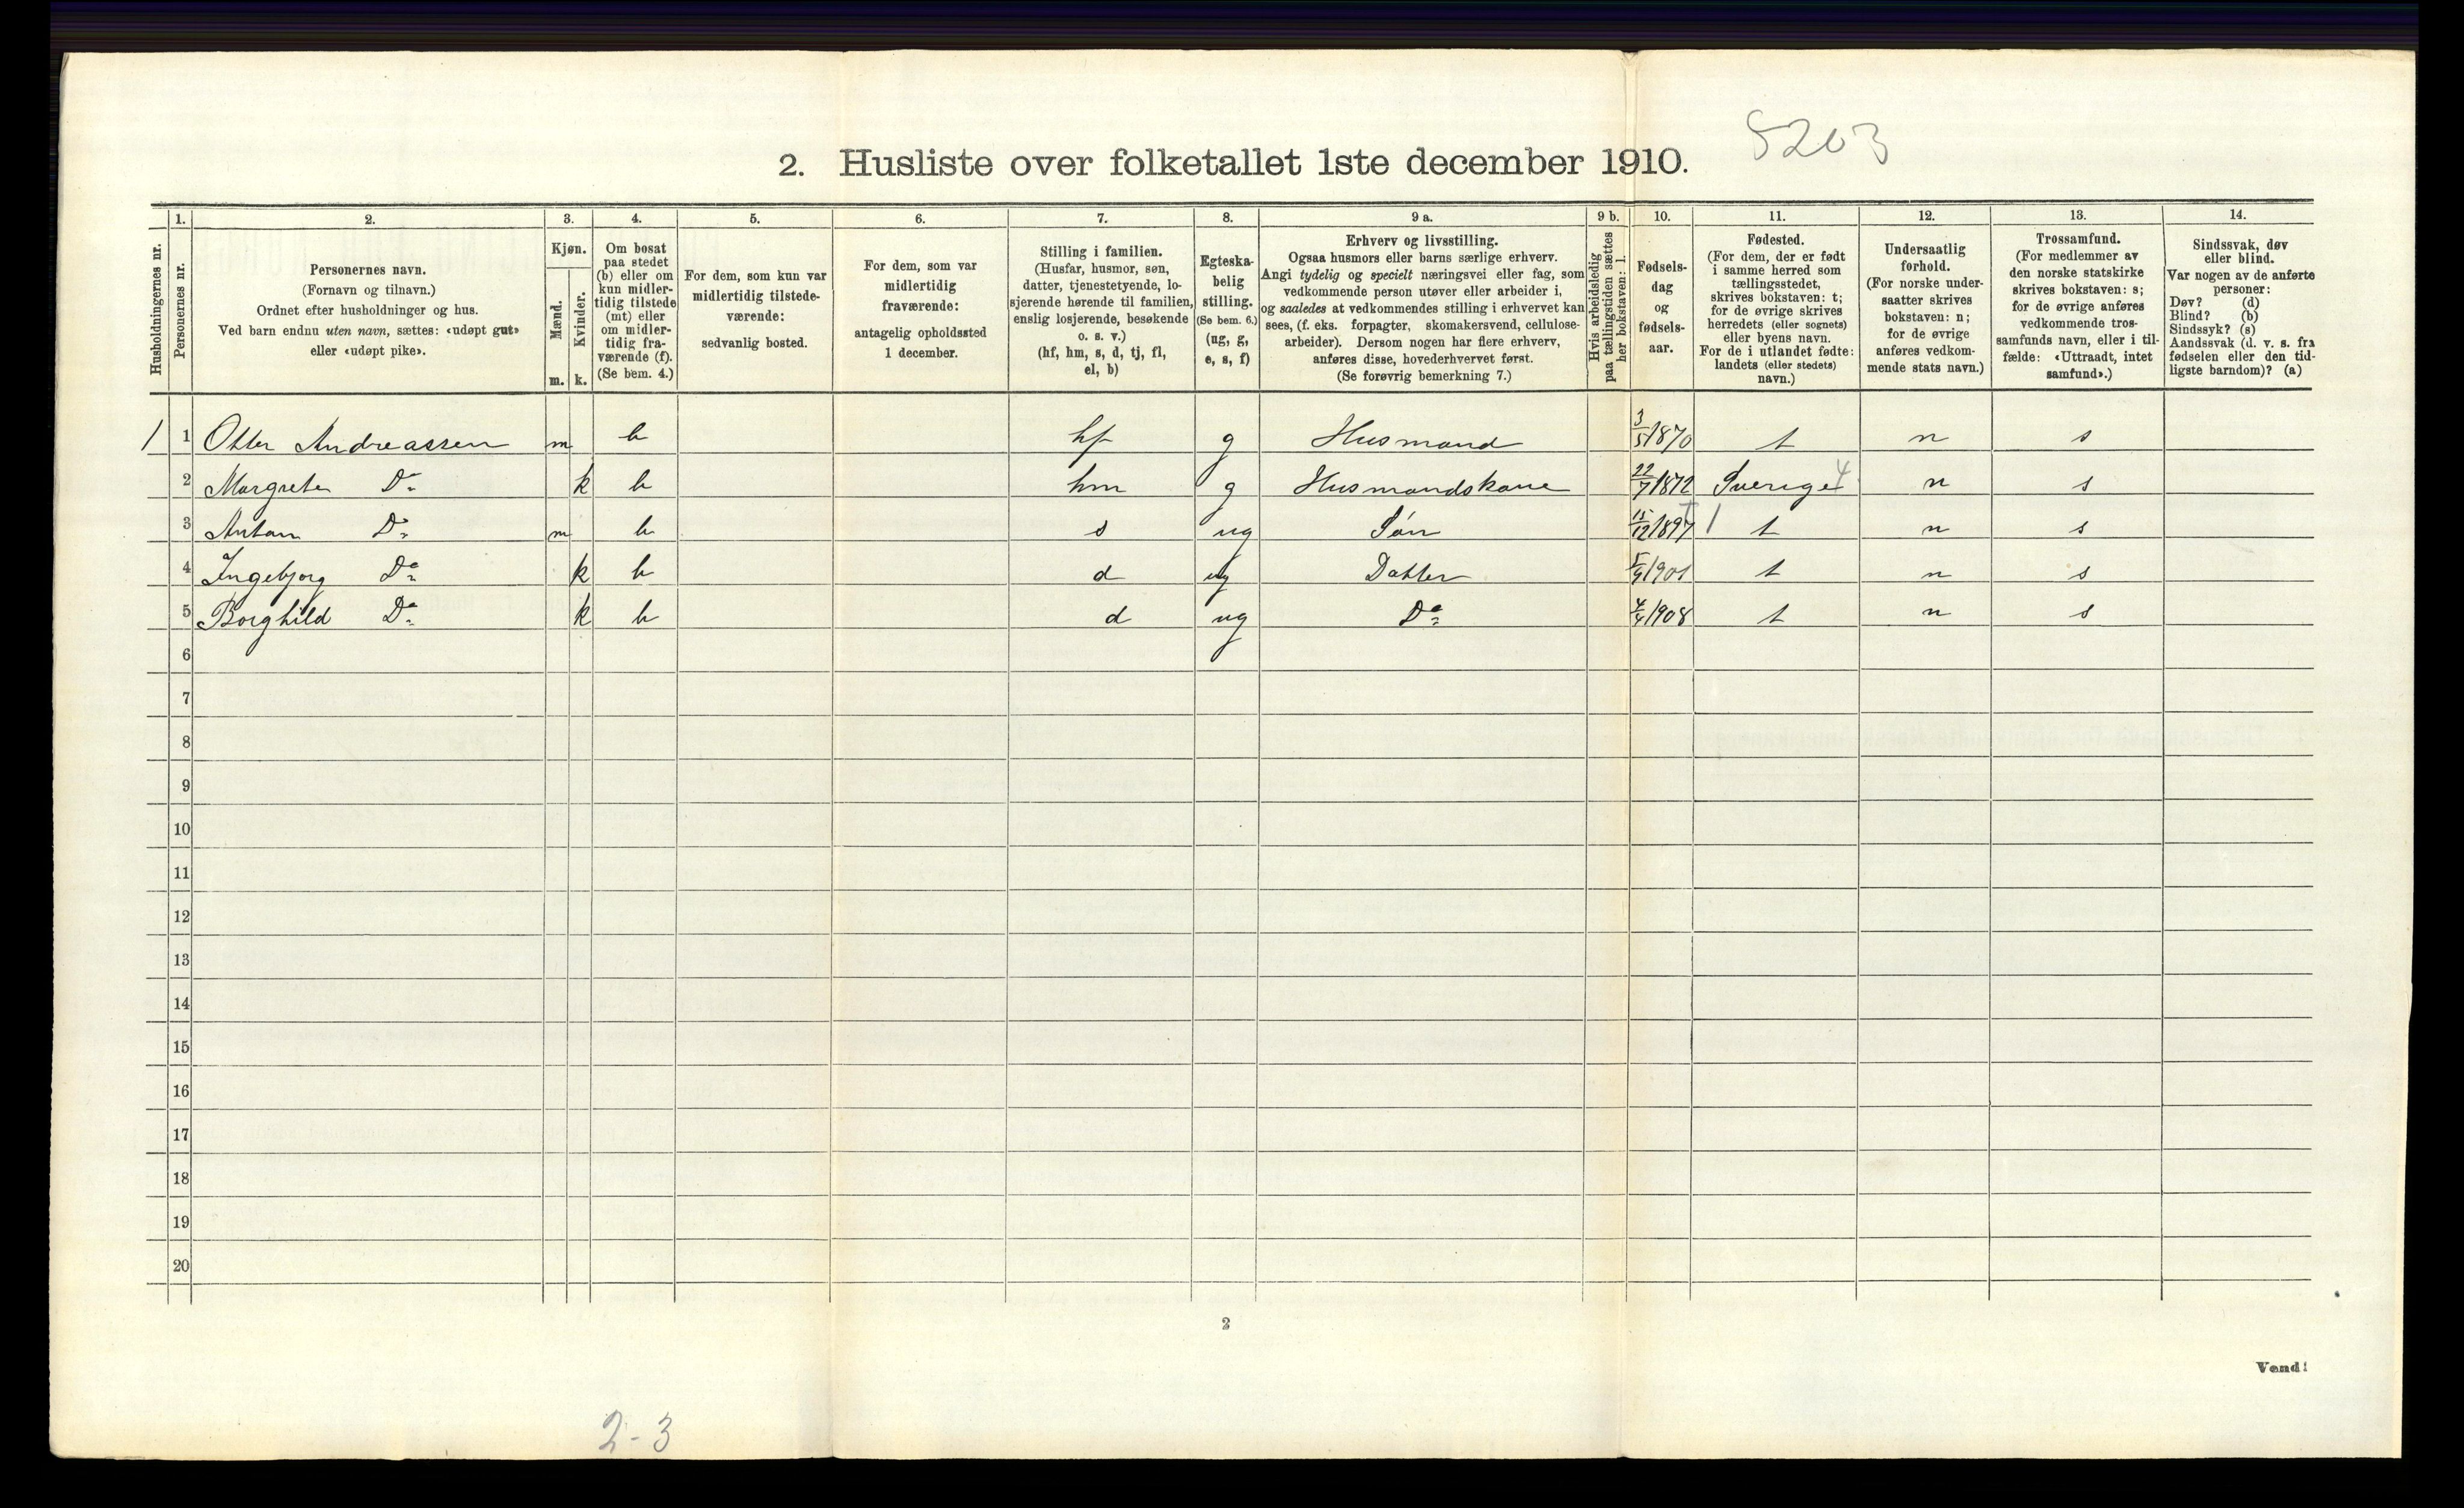 8203
2. Husliste over folketallet 1ste december 1910.
Husholdningernes nr.
1.
Personernes nr.
2.
Personernes navn.
(Fornavn og tilnavn.)
Ordnet efter husholdninger og hus.
Ved barn endnu uten navn, sættes: «udøpt gut»
eller «udøpt pike».
3.
Kjøn.
Mænd.
Kvinder.
m. k.
4.
Om bosat
paa stedet
(b) eller om
kun midler-
tidig tilstede
(mt) eller
om midler-
tidig fra-
værende (f).
(Se bem. 4.)
5.
For dem, som kun var
midlertidig tilstede-
værende:
sedvanlig bosted.
6.
For dem, som var
midlertidig
fraværende:
antagelig opholdssted
1 december.
7.
Stilling i familien.
(Husfar, husmor, søn,
datter, tjenestetyende, lo-
sjerende hørende til familien,
enslig losjerende, besøkende
o. s. v.)
(hf, hm, s, d, tj, fl,
el, b)
8.
Egteska-
belig
stilling.
(Se bem. 6.)
(ug, g,
e, s, f)
9 a.
Erhverv og livsstilling.
Ogsaa husmors eller barns særlige erhverv.
Angi tydelig og specielt næringsvei eller fag, som
vedkommende person utøver eller arbeider i,
og saaledes at vedkommendes stilling i erhvervet kan
sees, (f. eks. forpagter, skomakersvend, cellulose-
arbeider). Dersom nogen har flere erhverv,
anføres disse, hovederhvervet først.
(Se forøvrig bemerkning 7.)
9 b.
Hvis arbeidsledig
paa tællingstiden sættes
her bokstaven: l.
10.
Fødsels-
dag
og
fødsels-
aar.
11.
Fødested.
(For dem, der er født
i samme herred som
tællingsstedet,
skrives bokstaven: t;
for de øvrige skrives
herredets (eller sognets)
eller byens navn.
For de i utlandet fødte:
landets (eller stedets)
navn.)
12.
Undersaatlig
forhold.
(For norske under-
saatter skrives
bokstaven: n;
for de øvrige
anføres vedkom-
mende stats navn.)
13.
Trossamfund.
(For medlemmer av
den norske statskirke
skrives bokstaven: s;
for de øvrige anføres
vedkommende tros-
samfunds navn, eller i til-
fælde: «Uttraadt, intet
samfund».)
14.
Sindssvak, døv
eller blind.
Var nogen av de anførte
personer:
Døv? (d)
Blind? (b)
Sindssyk? (s)
Aandssvak (d. v. s. fra
fødselen eller den tid-
ligste barndom)? (a)
1 1 Otter Andreassen m b hf g Husmand 3/5 1870 t n s
2 Margrete Do k b hm g Husmandskone 22/7 1872 Sverige 4 n s
3 Anton Do m b s ug Søn 15/12 1897 t 1 t n s
4 Ingebjorg Do k b d ug Datter 5/9 1901 t n s
5 Borghild Do k b d ug Do 4/4 1908 t n s
6
7
8
9
10
11
12
13
14
15
16
17
18
19
20
2
Vend!
2-3